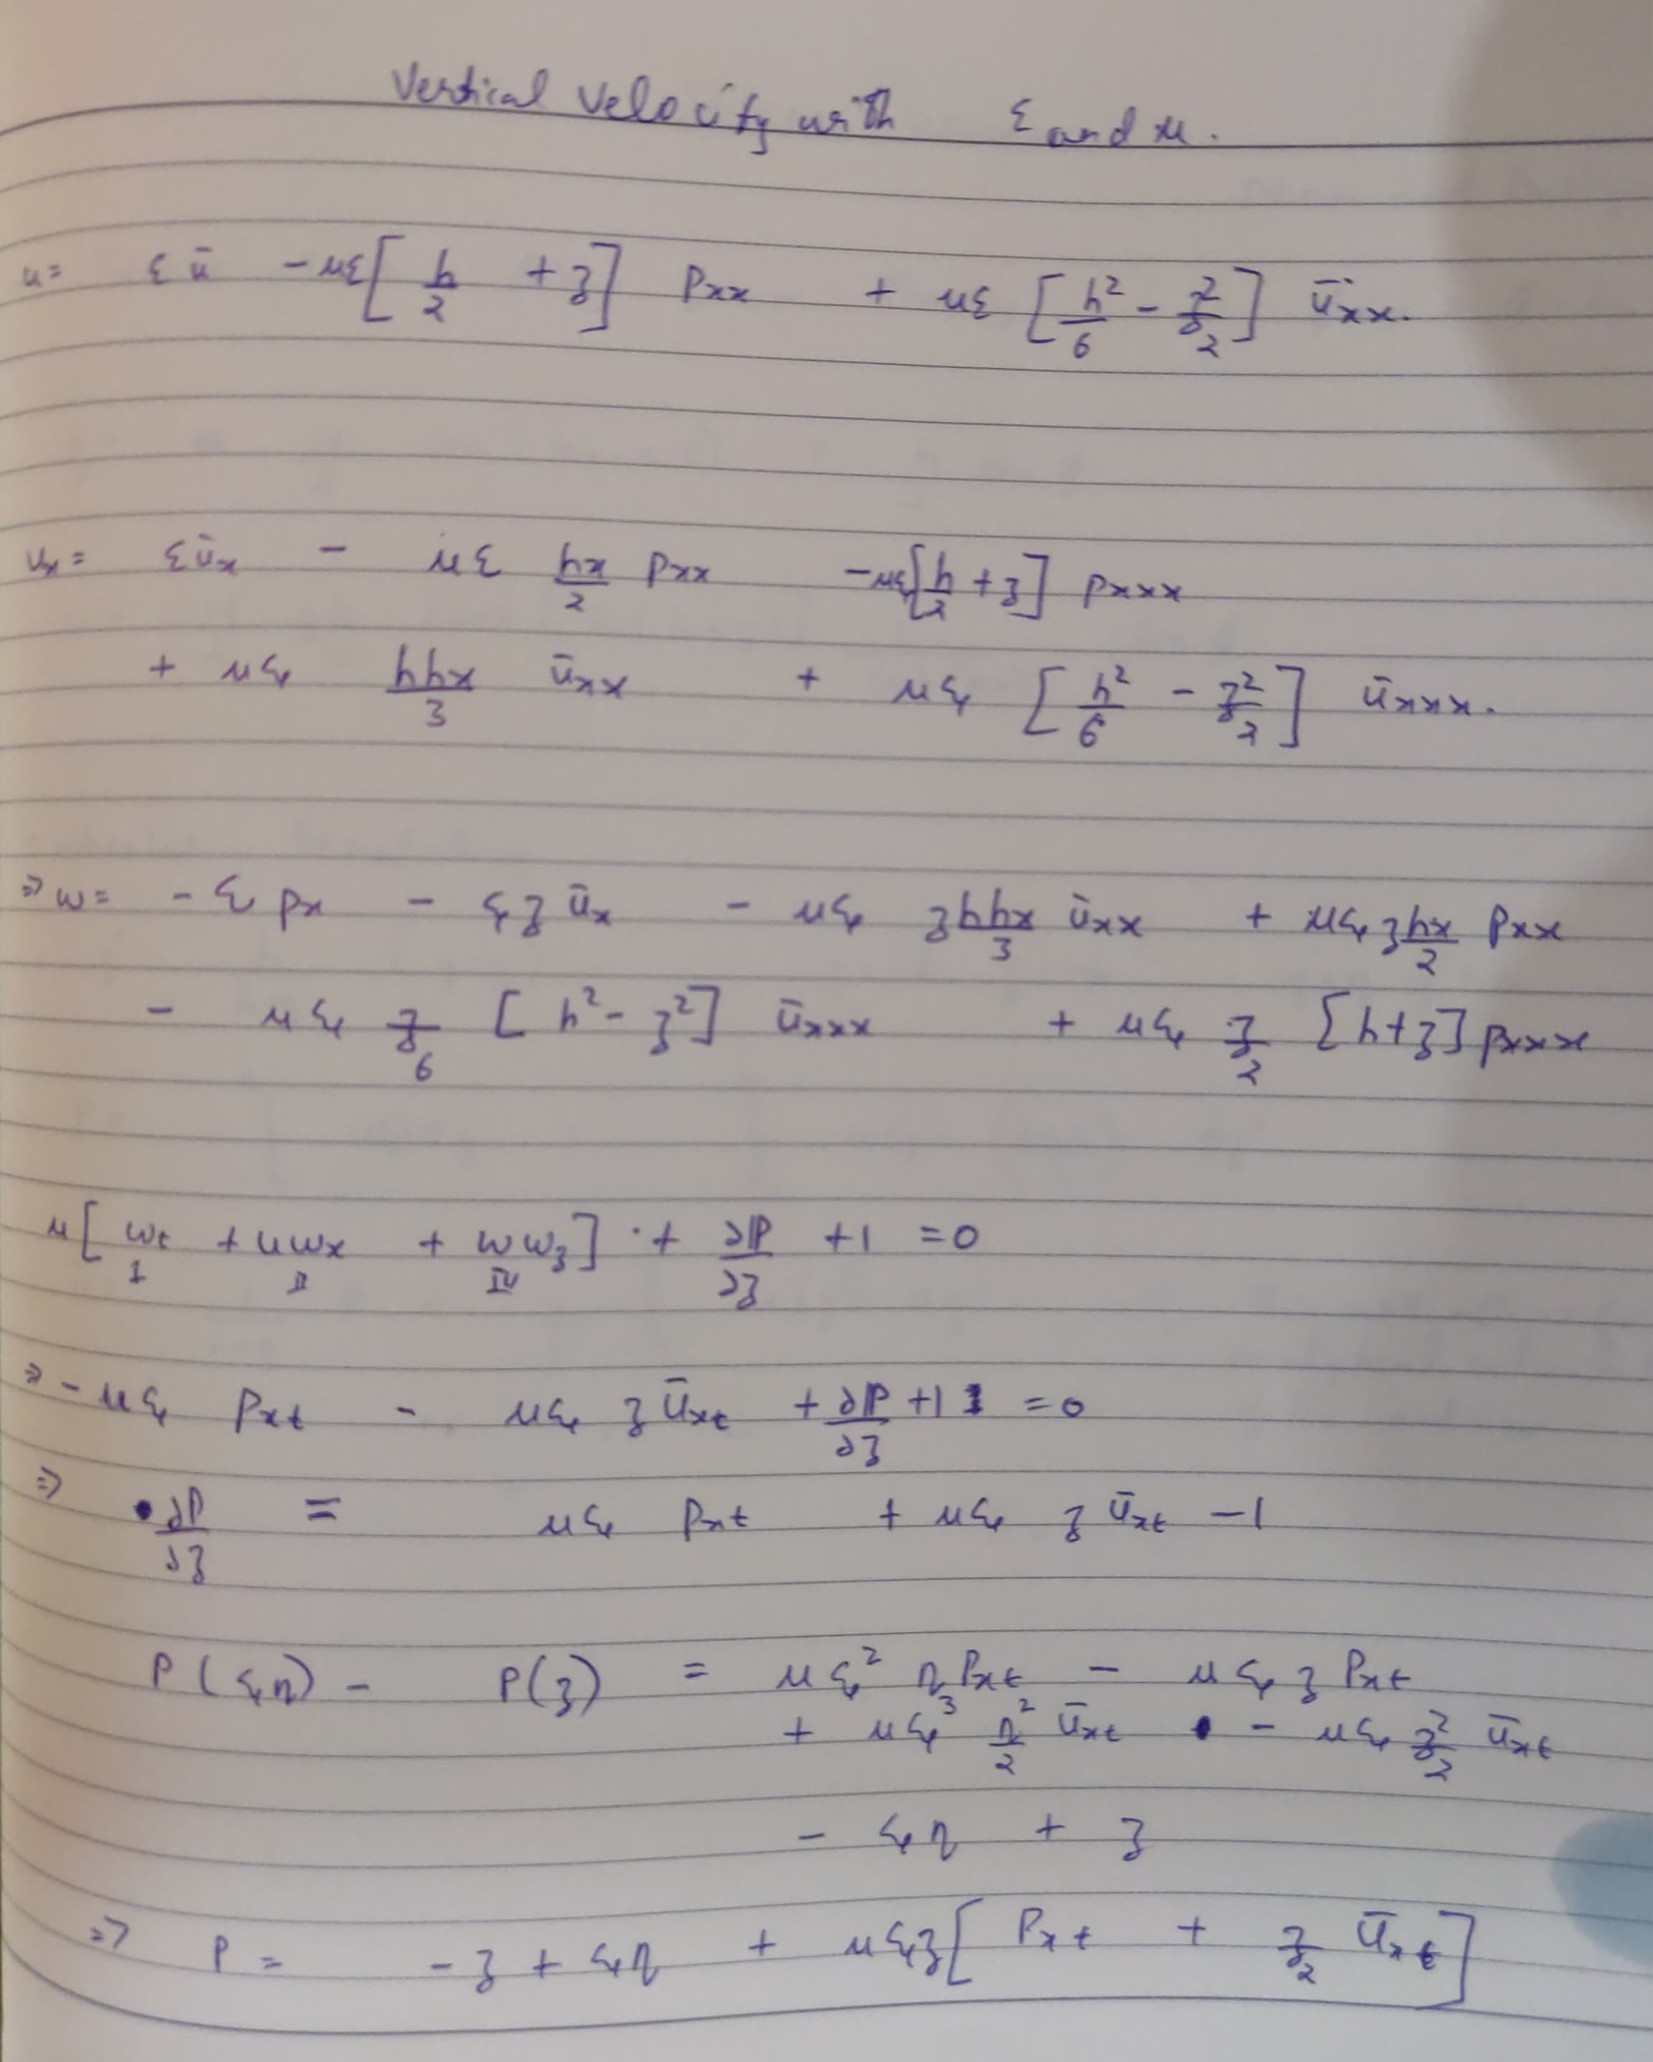 Vertical Velocity with ε and μ.
u = εū - με[h/2 + z] pxx + με [h²/6 - z²/2] ūxx.
ux = εūx - με hx/2 pxx - με[h/2 + z] pxxx
+ με hhx/3 ūxx + με [h²/6 - z²/2] ūxxx.
⇒ w = - ε px - εz ūx - με zhhx/3 ūxx + με z hx/2 pxx
- με z/6 [h² - z²] ūxxx + με z/2 [h+z] pxxx
μ[wt + uwx + wwz] + ∂P/∂z + 1 = 0
I II IV
⇒ - με pxt - με z ūxt + ∂P/∂z + 1 = 0
⇒ ∂P/∂z = με pxt + με z ūxt - 1
P(εη) - P(z) = με² η pxt - με z pxt
+ με³ η²/2 ūxt - με z²/2 ūxt
- εη + z
⇒ P = - z + εη + μεz[ pxt + z/2 ūxt]